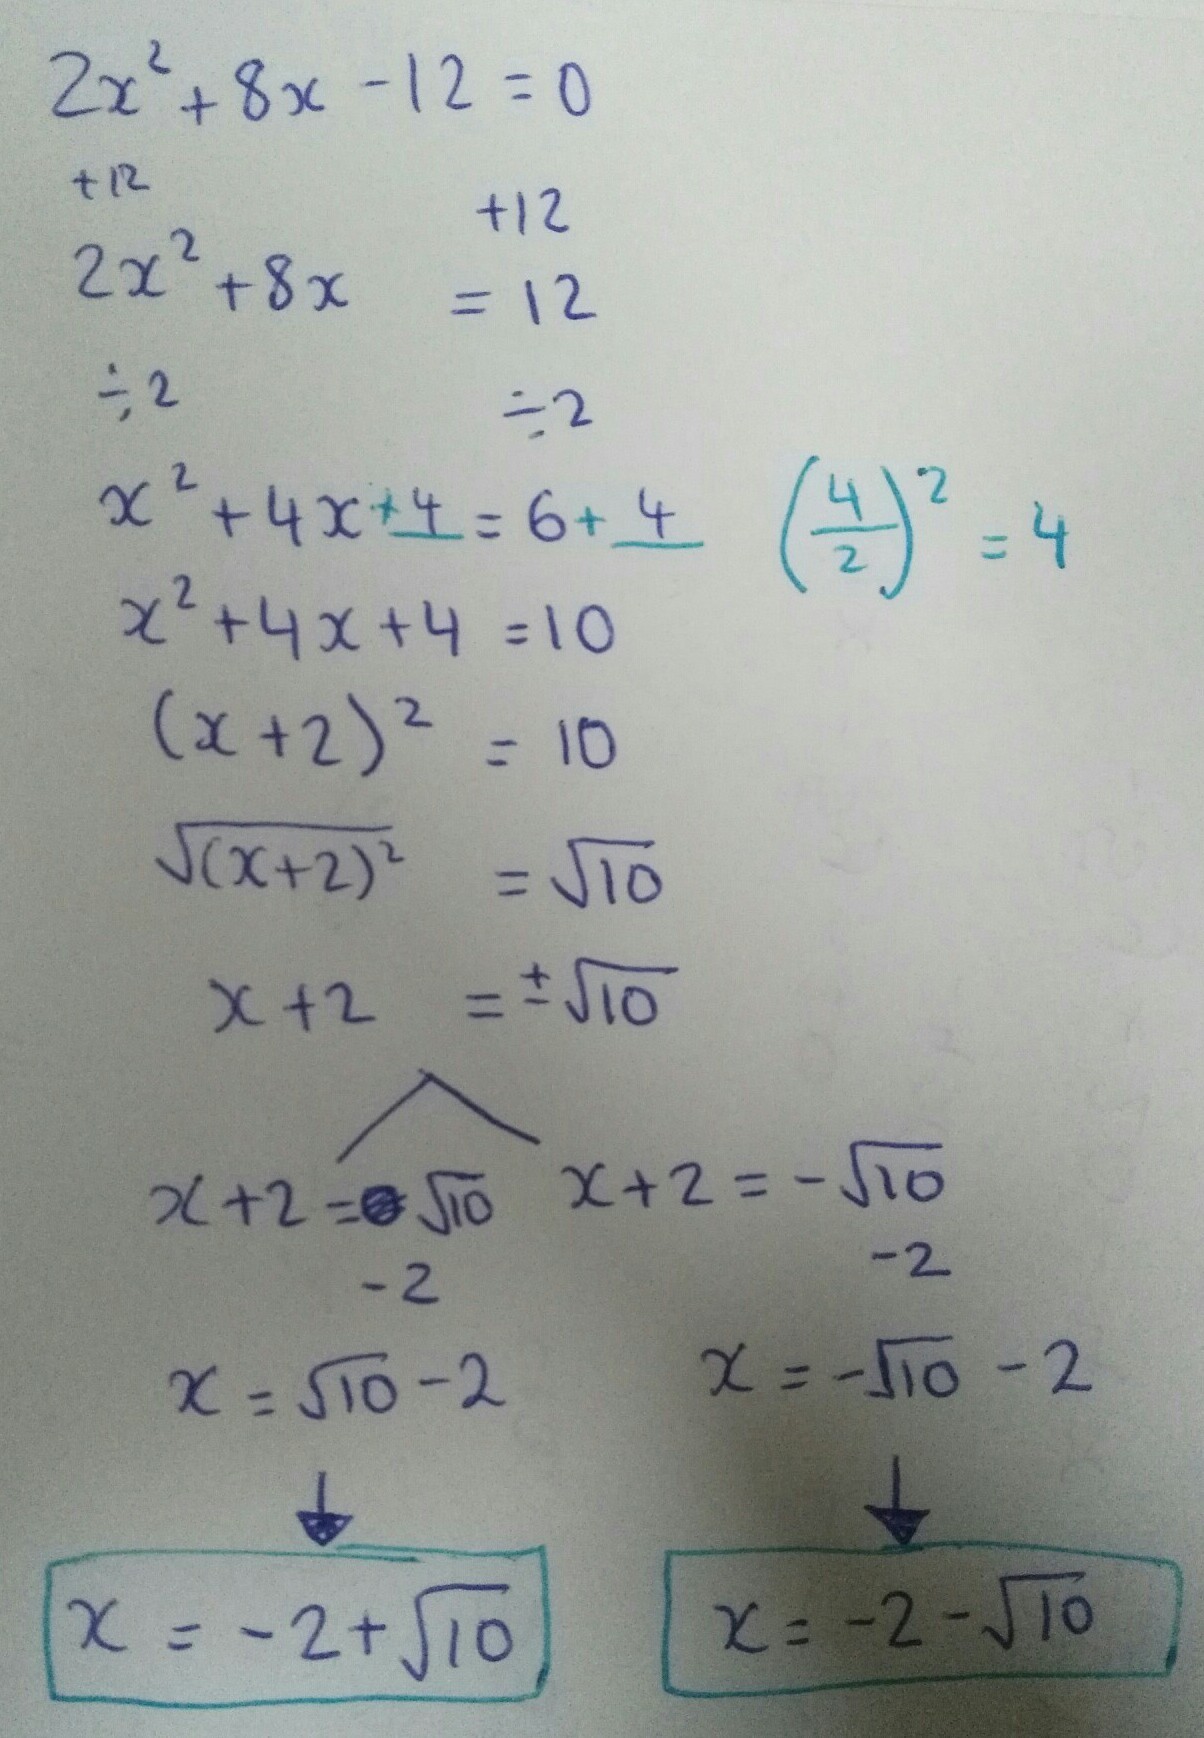 2x² + 8x - 12 = 0
+12 +12
2x² + 8x = 12
÷2 ÷2
x² + 4x + 4 = 6 + 4 (4/2)² = 4
x² + 4x + 4 = 10
(x + 2)² = 10
√(x+2)² = √10
x + 2 = ±√10
x + 2 = √10 x + 2 = -√10
-2 -2
x = √10 - 2 x = -√10 - 2
x = -2 + √10 x = -2 - √10